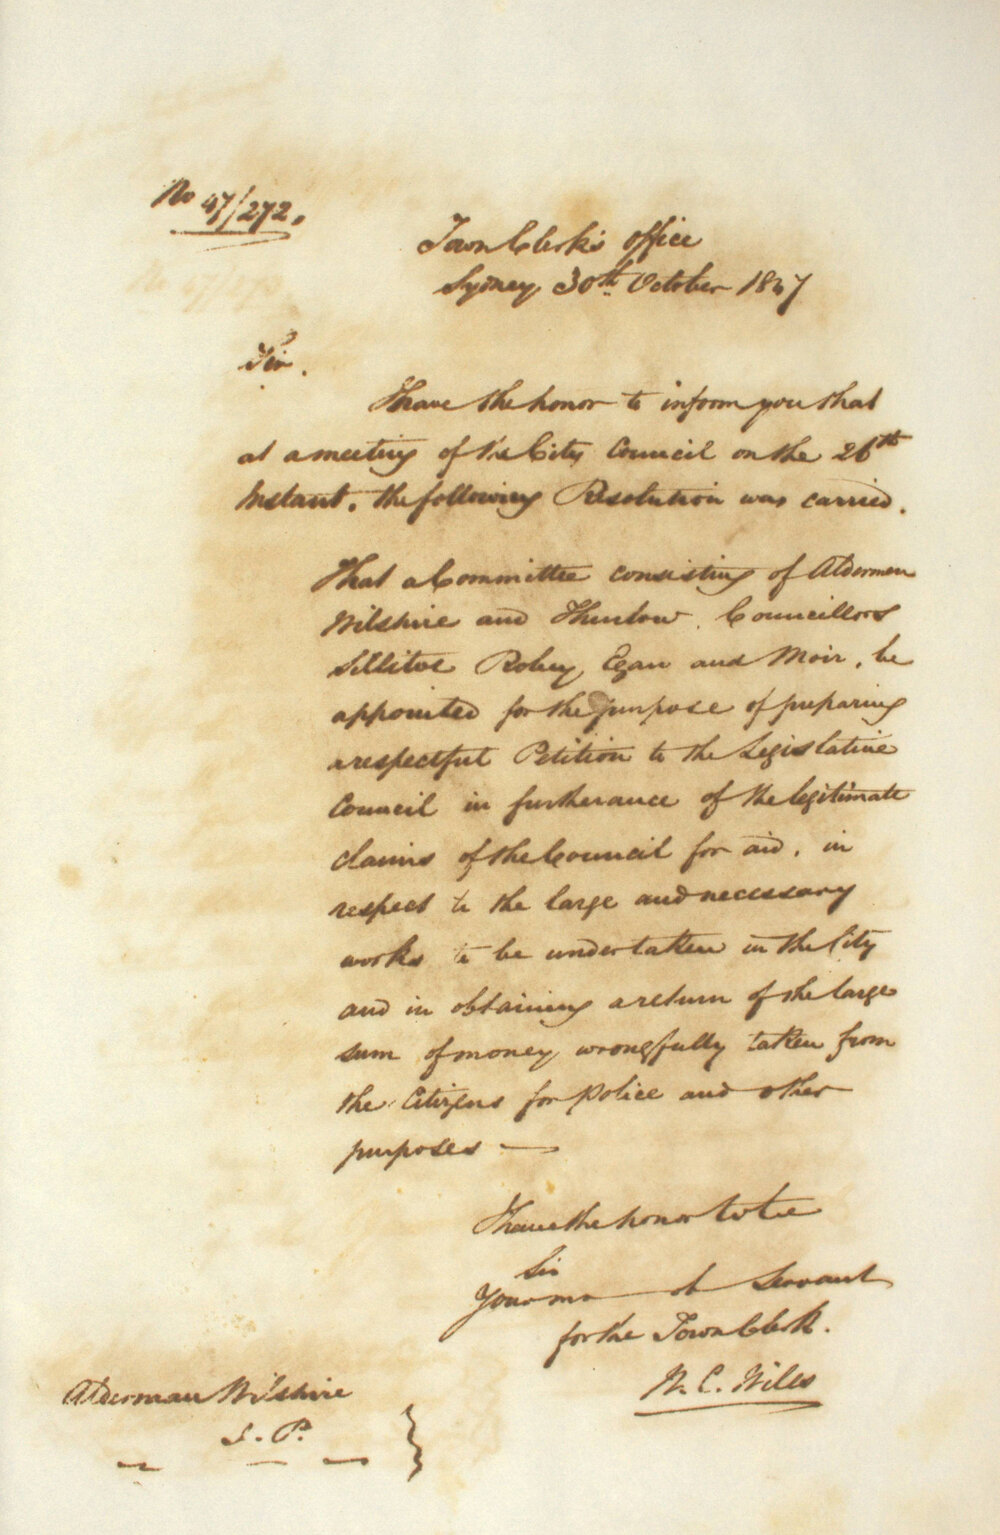 No 47/272.
Town Clerk's Office
Sydney 30th October 1847
Sir.
I have the honor to inform you that
at a meeting of the City Council on the 26th
Instant. the following Resolution was carried.
That a Committee consisting of Aldermen
Wilshire and Thurlow, Councillors
Sillitoe Robey, Egan and Moir, be
appointed for the purpose of preparing
a respectful Petition to the Legislative
Council in furtherance of the legitimate
claims of the Council for aid, in
respect to the large and necessary
works to be undertaken in the City
and in obtaining a return of the large
sum of money wrongfully taken from
the Citizens for Police and other
purposes —
I have the honor to be
Sir
Your mo ob Servant
for the Town Clerk.
W. C. Wills
Alderman Wilshire
J. P.